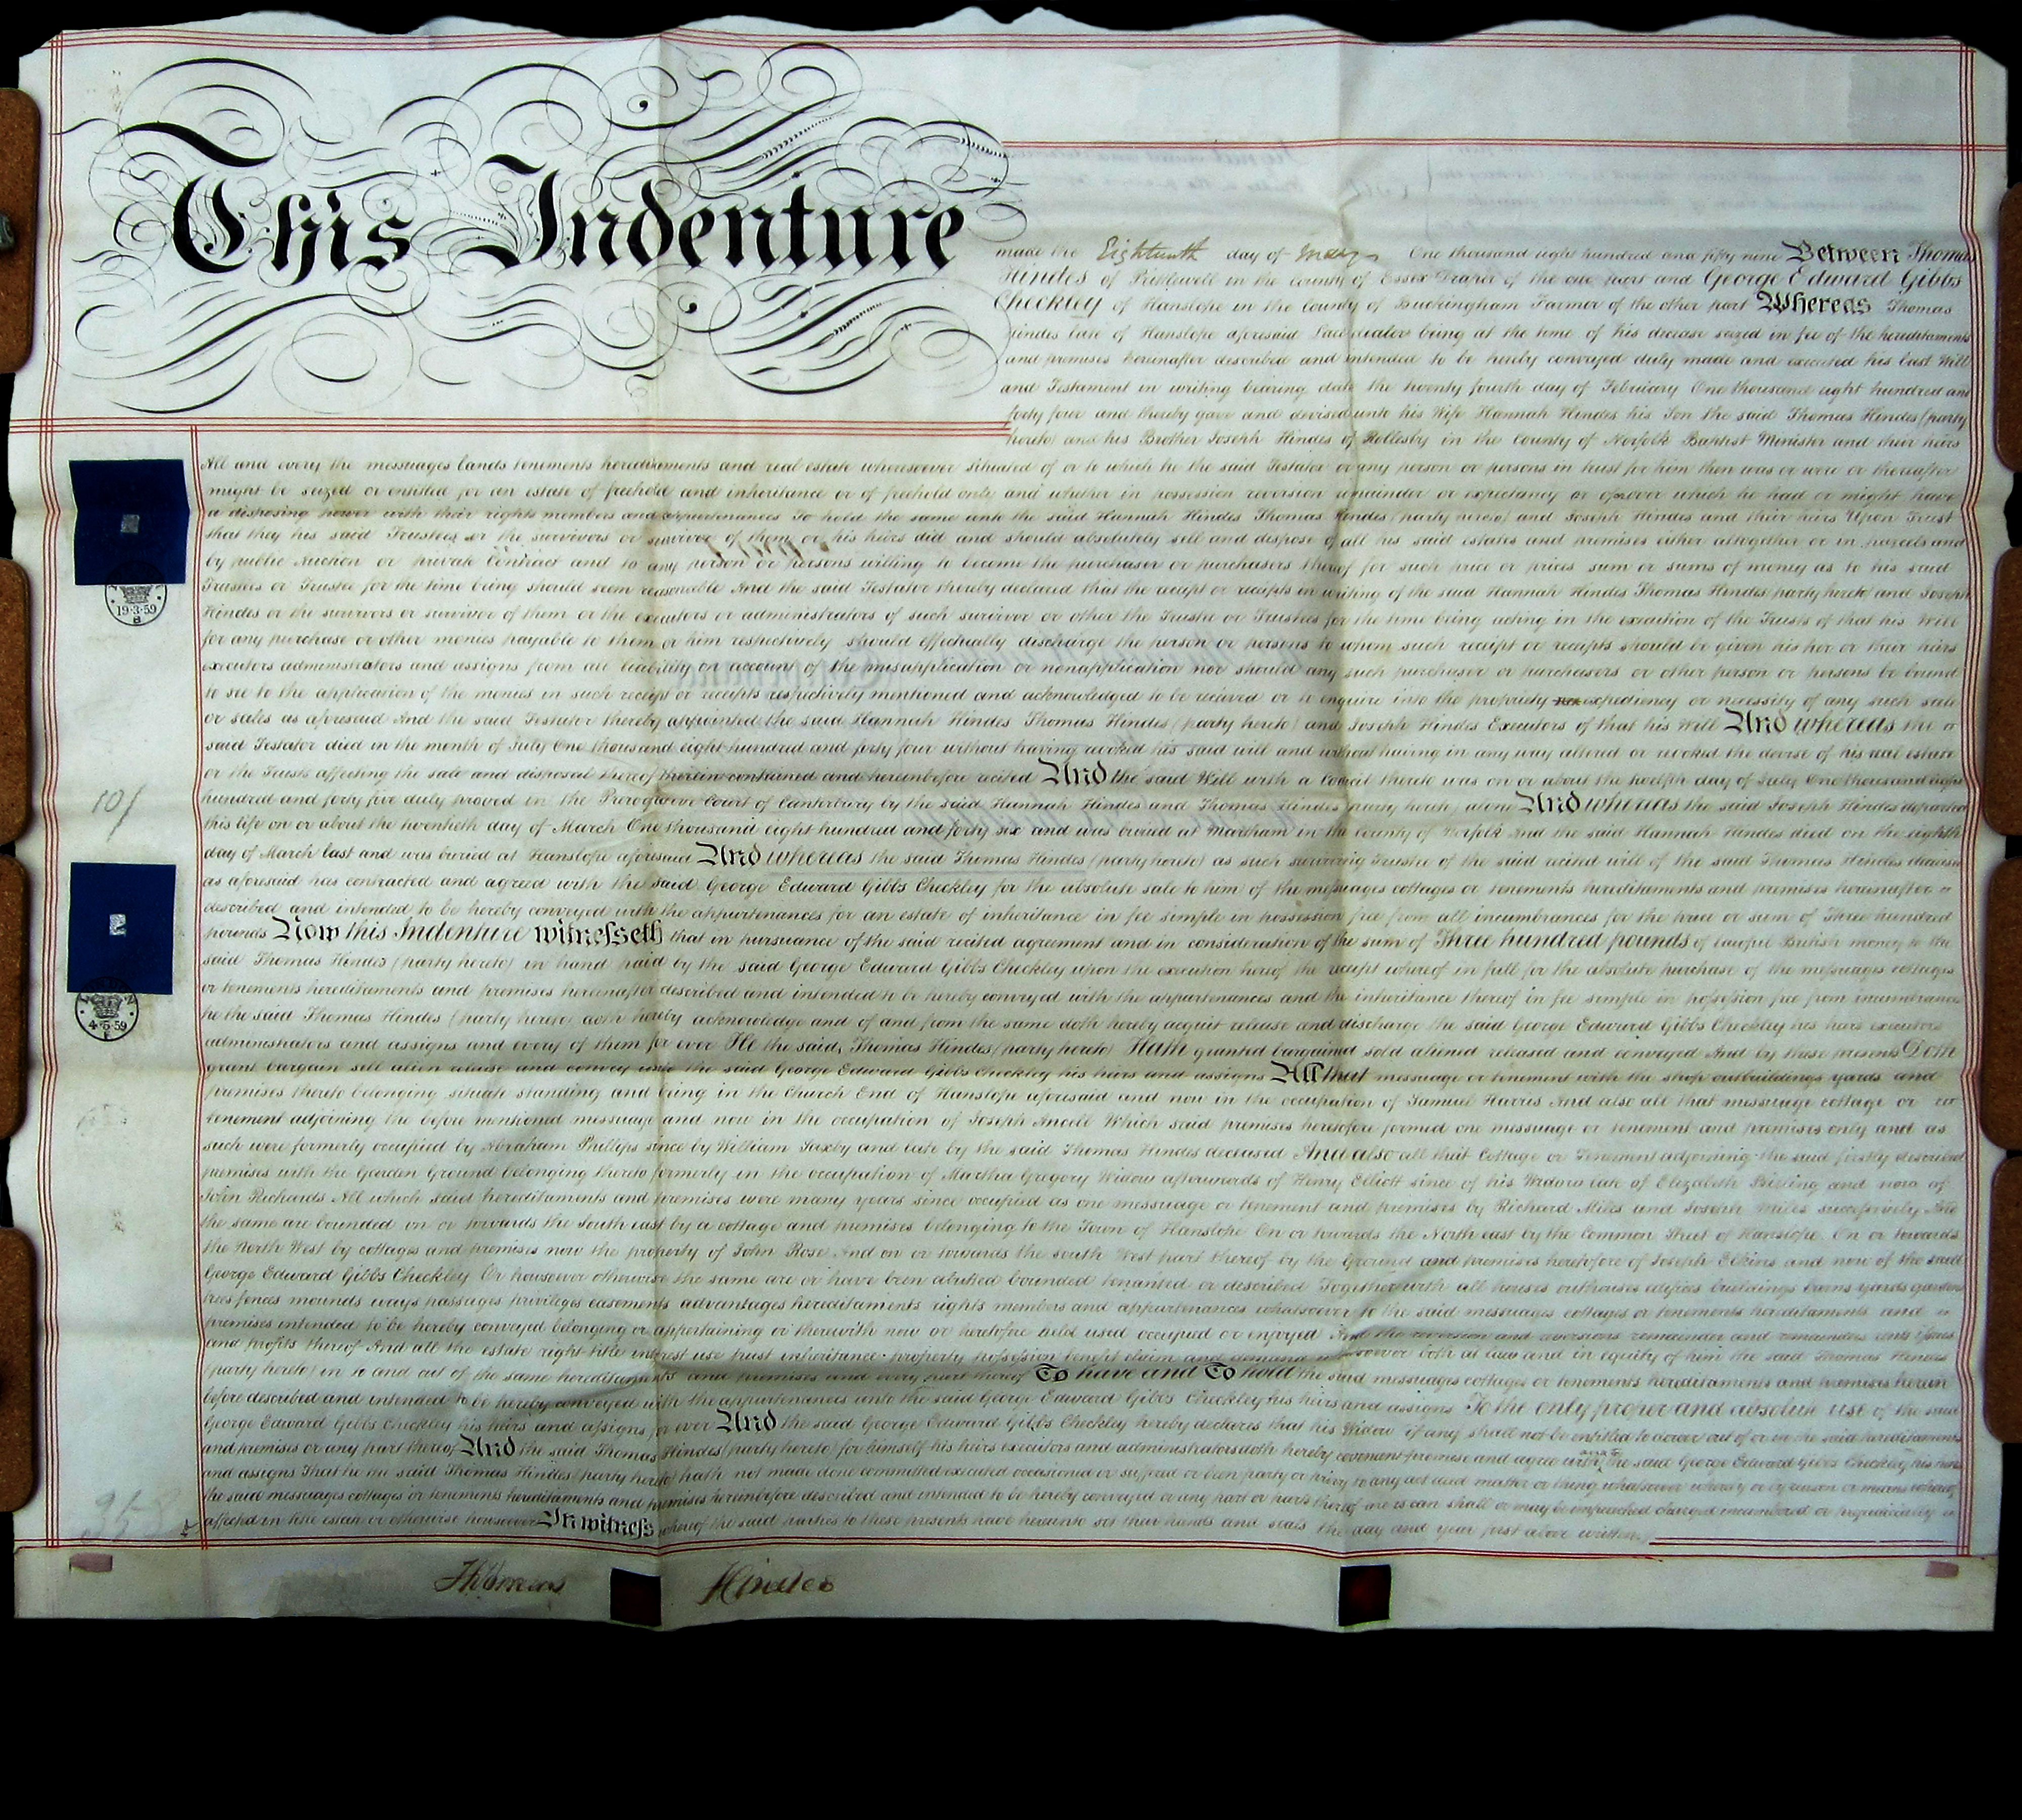 This Indenture
made the Eighteenth day of May One thousand eight hundred and fifty nine Between Thomas
Hindes of Prittlewell in the County of Essex Draper of the one part and George Edward Gibbs
Checkley of Hanslope in the County of Buckingham Farmer of the other part Whereas Thomas
Hindes late of Hanslope aforesaid Lace dealer being at the time of his decease seized in fee of the hereditaments
and premises hereinafter described and intended to be hereby conveyed duly made and executed his last Will
and Testament in writing bearing date the twenty fourth day of February One thousand eight hundred and
forty four and thereby gave and devised unto his Wife Hannah Hindes his Son the said Thomas Hindes (party
hereto) and his Brother Joseph Hindes of Rollesby in the County of Norfolk Baptist Minister and their heirs
All and every the messuages lands tenements hereditaments and real estate wheresoever situated of or to which he the said Testator or any person or persons in trust for him then was or were or thereafter
might be seized or entitled for an estate of freehold and inheritance or of freehold only and whether in possession reversion remainder or expectancy or of or over which he had or might have
a disposing power with their rights members and appurtenances To hold the same unto the said Hannah Hindes Thomas Hindes (party hereto) and Joseph Hindes and their heirs Upon Trust
that they his said Trustees or the survivors or survivor of them or his heirs did and should absolutely sell and dispose of all his said estates and premises either altogether or in parcels and
by public Auction or private Contract and to any person or persons willing to become the purchaser or purchasers thereof for such price or prices sum or sums of money as to his said
Trustees or Trustee for the time being should seem reasonable And the said Testator thereby declared that the receipt or receipts in writing of the said Hannah Hindes Thomas Hindes (party hereto) and Joseph
Hindes or the survivors or survivor of them or the executors or administrators of such survivor or other the Trustee or Trustees for the time being acting in the execution of the Trusts of that his Will
for any purchase or other monies payable to them or him respectively should effectually discharge the person or persons to whom such receipt or receipts should be given his her or their heirs
executors administrators and assigns from all liability on account of the misapplication or nonapplication nor should any such purchaser or purchasers or other person or persons be bound
to see to the application of the monies in such receipt or receipts respectively mentioned and acknowledged to be received or to enquire into the propriety expediency or necessity of any such sale
or sales as aforesaid And the said Testator thereby appointed the said Hannah Hindes Thomas Hindes (party hereto) and Joseph Hindes Executors of that his Will And whereas the
said Testator died in the month of July One thousand eight hundred and forty four without having revoked his said will and without having in any way altered or revoked the devise of his real estate
or the Trusts affecting the sale and disposal thereof therein contained and hereinbefore recited And the said Will with a Codicil thereto was on or about the twelfth day of July One thousand eight
hundred and forty five duly proved in the Prerogative Court of Canterbury by the said Hannah Hindes and Thomas Hindes party hereto alone And whereas the said Joseph Hindes departed
this life on or about the twentieth day of March One thousand eight hundred and forty six and was buried at Martham in the County of Norfolk And the said Hannah Hindes died on the eighth
day of March last and was buried at Hanslope aforesaid And whereas the said Thomas Hindes (party hereto) as such surviving Trustee of the said recited will of the said Thomas Hindes deceased
as aforesaid has contracted and agreed with the said George Edward Gibbs Checkley for the absolute sale to him of the messuages cottages or tenements hereditaments and premises hereinafter
described and intended to be hereby conveyed with the appurtenances for an estate of inheritance in fee simple in possession free from all incumbrances for the price or sum of Three hundred
pounds Now this Indenture witnesseth that in pursuance of the said recited agreement and in consideration of the sum of Three hundred pounds of lawful British money to the
said Thomas Hindes (party hereto) in hand paid by the said George Edward Gibbs Checkley upon the execution hereof the receipt whereof in full for the absolute purchase of the messuages cottages
or tenements hereditaments and premises hereinafter described and intended to be hereby conveyed with the appurtenances and the inheritance thereof in fee simple in possession free from incumbrances
he the said Thomas Hindes (party hereto) doth hereby acknowledge and of and from the same doth hereby acquit release and discharge the said George Edward Gibbs Checkley his heirs executors
administrators and assigns and every of them for ever He the said Thomas Hindes (party hereto) Hath granted bargained sold aliened released and conveyed And by these presents Doth
grant bargain sell alien release and convey unto the said George Edward Gibbs Checkley his heirs and assigns All that messuage or tenement with the shop outbuildings yards and
premises thereto belonging situate standing and being in the Church End of Hanslope aforesaid and now in the occupation of Samuel Harris And also all that messuage cottage or
tenement adjoining the before mentioned messuage and now in the occupation of Joseph Ancell Which said premises heretofore formed one messuage or tenement and premises only and as
such were formerly occupied by Abraham Phillips since by William Saxby and late by the said Thomas Hindes deceased And also all that Cottage or Tenement adjoining the said firstly described
premises with the Garden Ground belonging thereto formerly in the occupation of Martha Gregory Widow afterwards of Henry Elliott since of his Widow late of Elizabeth and now of
John Richards All which said hereditaments and premises were many years since occupied as one messuage or tenement and premises by Richard Miles and Joseph Miles successively And
the same are bounded on or towards the South east by a cottage and premises belonging to the Town of Hanslope On or towards the North east by the Common Street of Hanslope On or towards
the North West by cottages and premises now the property of John Rose And on or towards the south West part thereof by the Ground and premises heretofore of Joseph Elkins and now of the said
George Edward Gibbs Checkley Or howsoever otherwise the same are or have been abutted bounded tenanted or described Together with all houses outhouses edifices buildings barns yards gardens
trees fences mounds ways passages privileges easements advantages hereditaments rights members and appurtenances whatsoever to the said messuages cottages or tenements hereditaments and
premises intended to be hereby conveyed belonging or appertaining or therewith now or heretofore held used occupied or enjoyed And the reversion and reversions remainder and remainders rents issues
and profits thereof And all the estate right title interest use trust inheritance property possession benefit claim and demand whatsoever both at law and in equity of him the said Thomas Hindes
(party hereto) in to and out of the same hereditaments and premises and every part thereof To have and To hold the said messuages cottages or tenements hereditaments and premises herein
before described and intended to be hereby conveyed with the appurtenances unto the said George Edward Gibbs Checkley his heirs and assigns To the only proper and absolute use of the said
George Edward Gibbs Checkley his heirs and assigns for ever And the said George Edward Gibbs Checkley hereby declares that his Widow if any shall not be entitled to dower out of or in the said hereditaments
and premises or any part thereof And the said Thomas Hindes (party hereto) for himself his heirs executors and administrators doth hereby covenant promise and agree with and to the said George Edward Gibbs Checkley his heirs
and assigns That he the said Thomas Hindes (party hereto) hath not made done committed executed occasioned or suffered or been party or privy to any act deed matter or thing whatsoever whereby or by reason or means whereof
the said messuages cottages or tenements hereditaments and premises hereinbefore described and intended to be hereby conveyed or any part or parts thereof are is can shall or may be impeached charged incumbered or prejudicially
affected in title estate or otherwise howsoever In witness whereof the said parties to these presents have hereunto set their hands and seals the day and year first above written
19·3·59
B
10/
4·5·59
E
Thomas Hindes